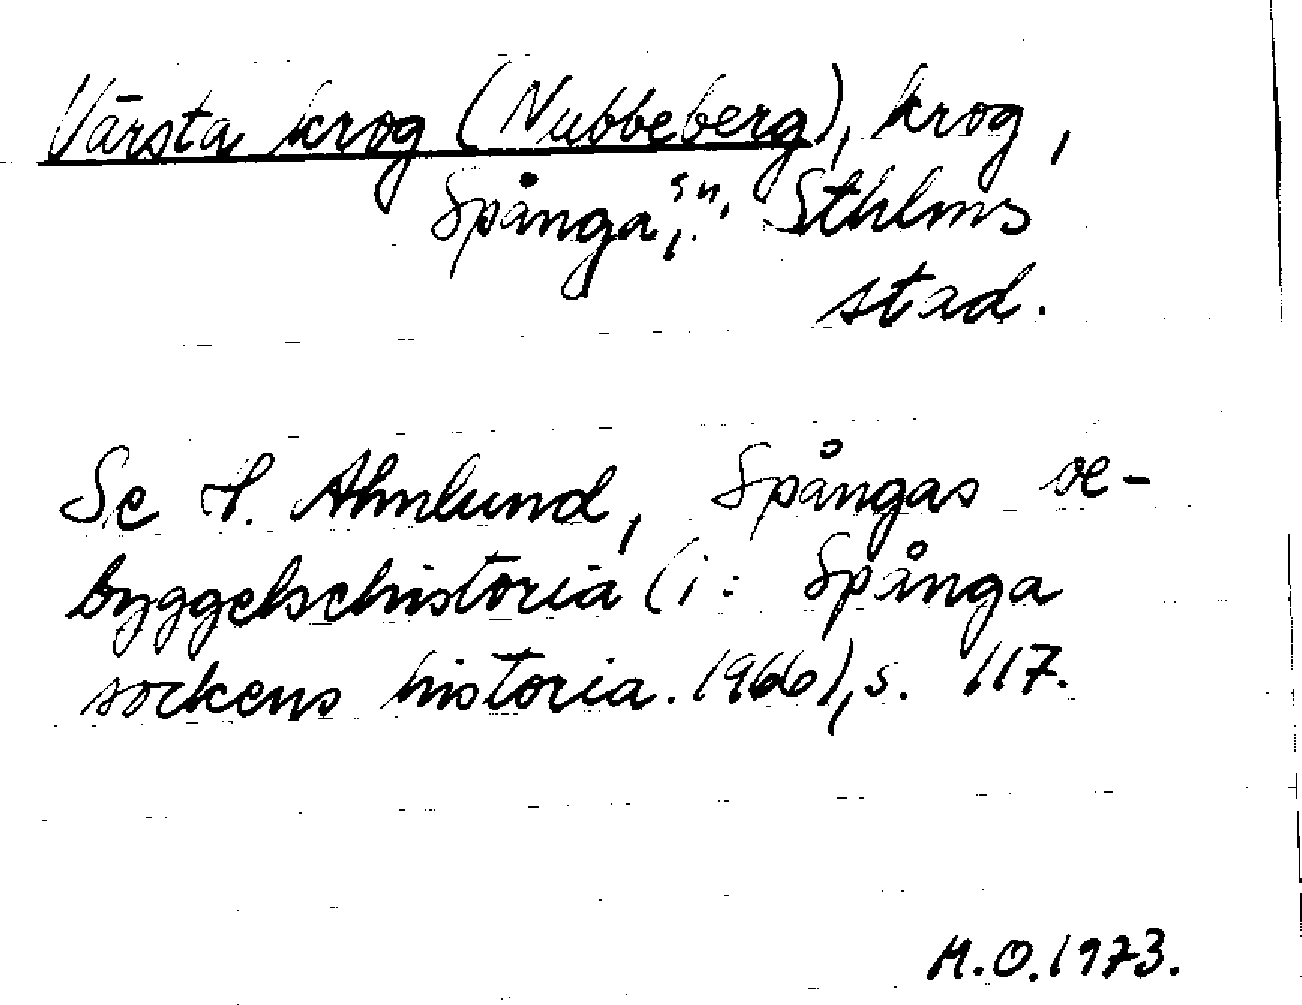 Värsta krog (Nubbeberg), krog,
Spånga, sn, Sthlms
stad.
Se H. Ahnlund, Spångas se-
byggelsehistoria (i: Spånga
sockens historia. 1966), s. 117.
M.O. 1973.